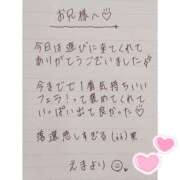 お兄様へ♡
今日は遊びに来てくれて
ありがとうございました
今までで1番気持ちいい
フェラ！って褒めてくれて
いっぱい出て良かった♡
爆連感しすぎる(笑)笑
えまより